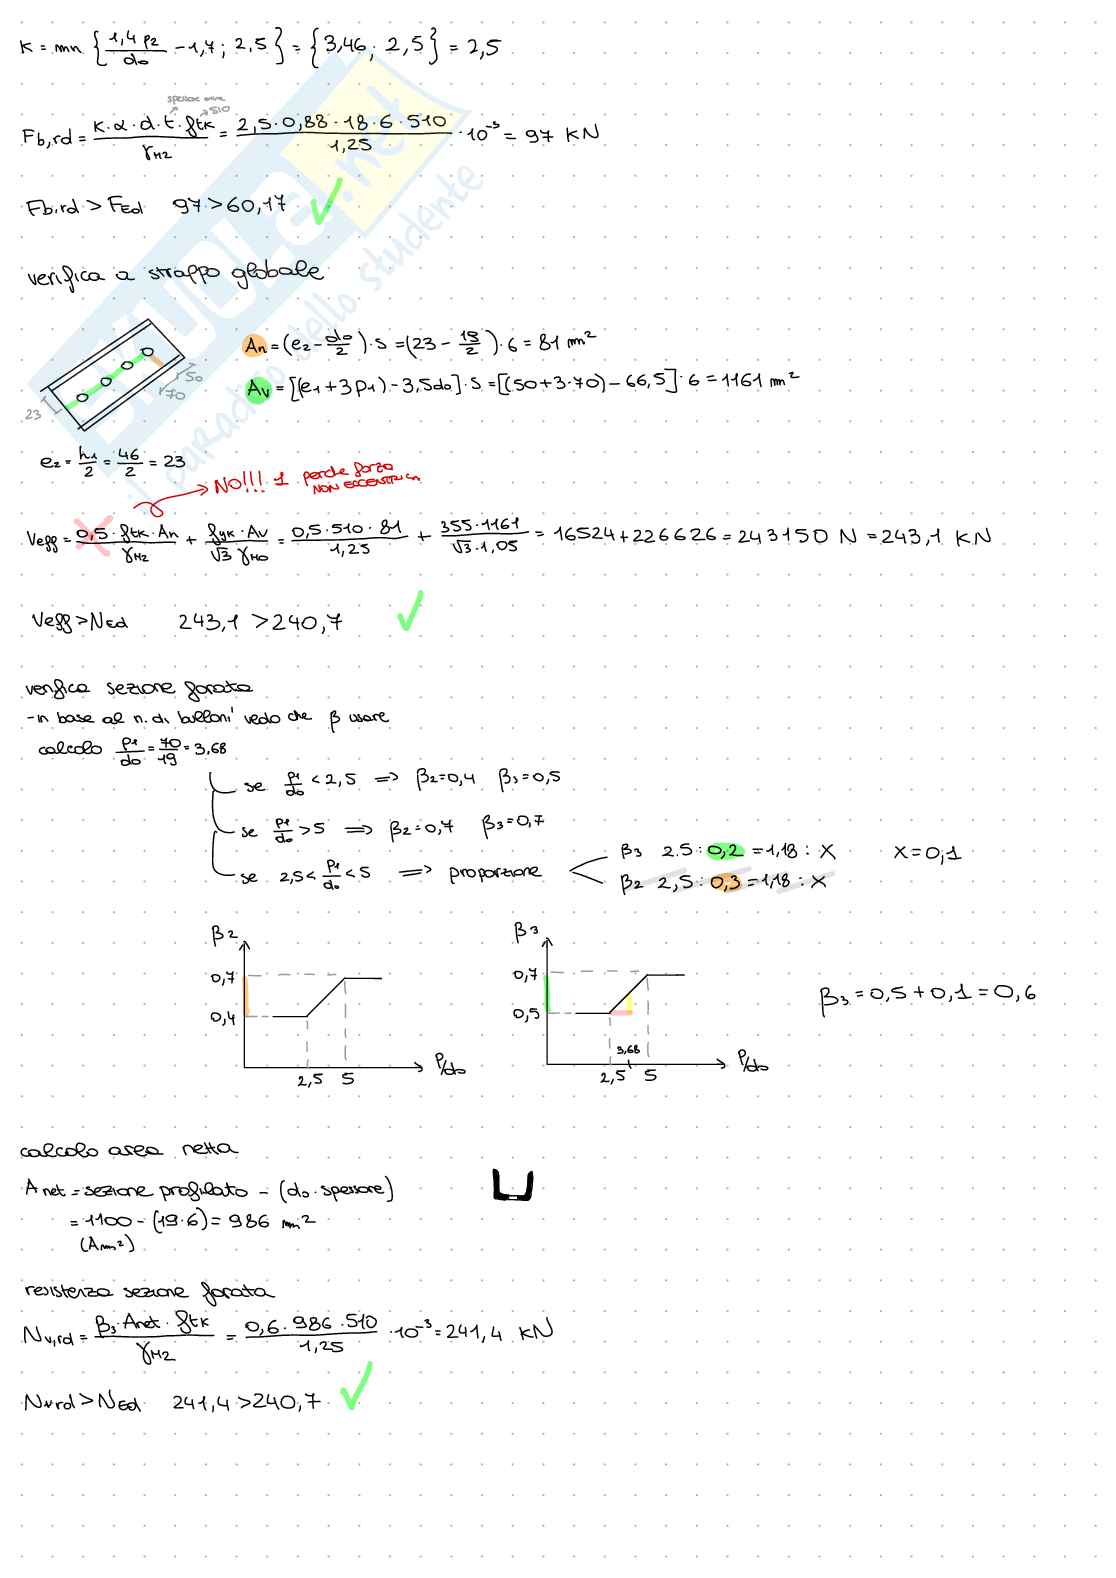 K = min { 1,4 p2 / d0 - 1,7 ; 2,5 } = { 3,46 ; 2,5 } = 2,5
spessore anima
510
Fb,rd = K · α · d · t · ftk / γM2 = 2,5 · 0,88 · 18 · 6 · 510 / 1,25 · 10⁻³ = 97 KN
Fb,rd > FEd 97 > 60,17 ✓
verifica a strappo globale
An = (e2 - d0/2) · s = (23 - 19/2) · 6 = 81 mm²
Av = [(e1 + 3p1) - 3,5d0] · s = [(50 + 3·70) - 66,5] · 6 = 1161 mm²
50
70
23
e2 = h1/2 = 46/2 = 23
NO!!! 1 perche forza
NON ECCENTRICA
Veff = 0,5 · ftk · An / γM2 + fyk · Av / √3 γM0 = 0,5 · 510 · 81 / 1,25 + 355 · 1161 / √3 · 1,05 = 16524 + 226626 = 243150 N = 243,1 KN
Veff > NEd 243,1 > 240,7 ✓
verifica sezione forata
- in base al n. di bulloni vedo che β usare
calcolo p1/d0 = 70/19 = 3,68
se p1/d0 < 2,5 ⇒ β2 = 0,4 β3 = 0,5
se p1/d0 > 5 ⇒ β2 = 0,7 β3 = 0,7
se 2,5 < p1/d0 < 5 ⇒ proporzione
β3 2.5 : 0,2 = 1,18 : X X = 0,1
β2 2,5 : 0,3 = 1,18 : X
β2
0,7
0,4
2,5 5
P/d0
β3
0,7
0,5
3,68
2,5 5
P/d0
β3 = 0,5 + 0,1 = 0,6
calcolo area netta
Anet = sezione profilato - (d0 · spessore)
= 1100 - (19·6) = 986 mm²
(A mm²)
resistenza sezione forata
Nu,rd = β3 · Anet · ftk / γM2 = 0,6 · 986 · 510 / 1,25 · 10⁻³ = 241,4 KN
Nu,rd > NEd 241,4 > 240,7 ✓
SKUOLA.net
il paradiso dello studente